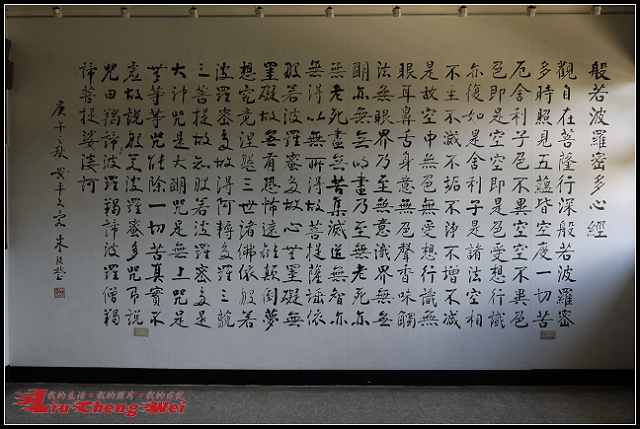 般若波羅密多心經
觀自在菩薩行深般若波羅密
多時照見五蘊皆空度一切苦
厄舍利子色不異空空不異色
色即是空空即是色受想行識
亦復如是舍利子是諸法空相
不生不滅不垢不淨不增不減
是故空中無色無受想行識無
眼耳鼻舌身意無色聲香味觸
法無眼界乃至無意識界無無
明亦無無明盡乃至無老死亦
無老死盡無苦集滅道無智亦
無得以無所得故菩提薩埵依
般若波羅密多故心無罣礙無
罣礙故無有恐怖遠離顛倒夢
想究竟涅槃三世諸佛依般若
波羅密多故得阿耨多羅三藐
三菩提故知般若波羅密多是
大神咒是大明咒是無上咒是
無等等咒能除一切苦真實不
虛故說般若波羅密多咒即說
咒曰羯諦波羅羯諦波羅僧羯
諦菩提娑婆訶
庚午之秋 安平 朱玖瑩
我的生活。我的照片。我的日記
Liu Cheng Wei